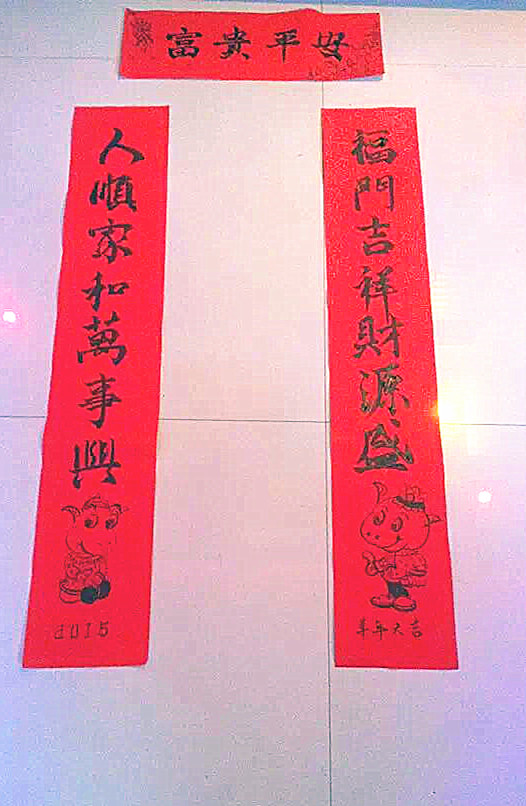 富貴平安
福門吉祥財源盛
羊年大吉
人順家和萬事興
2015